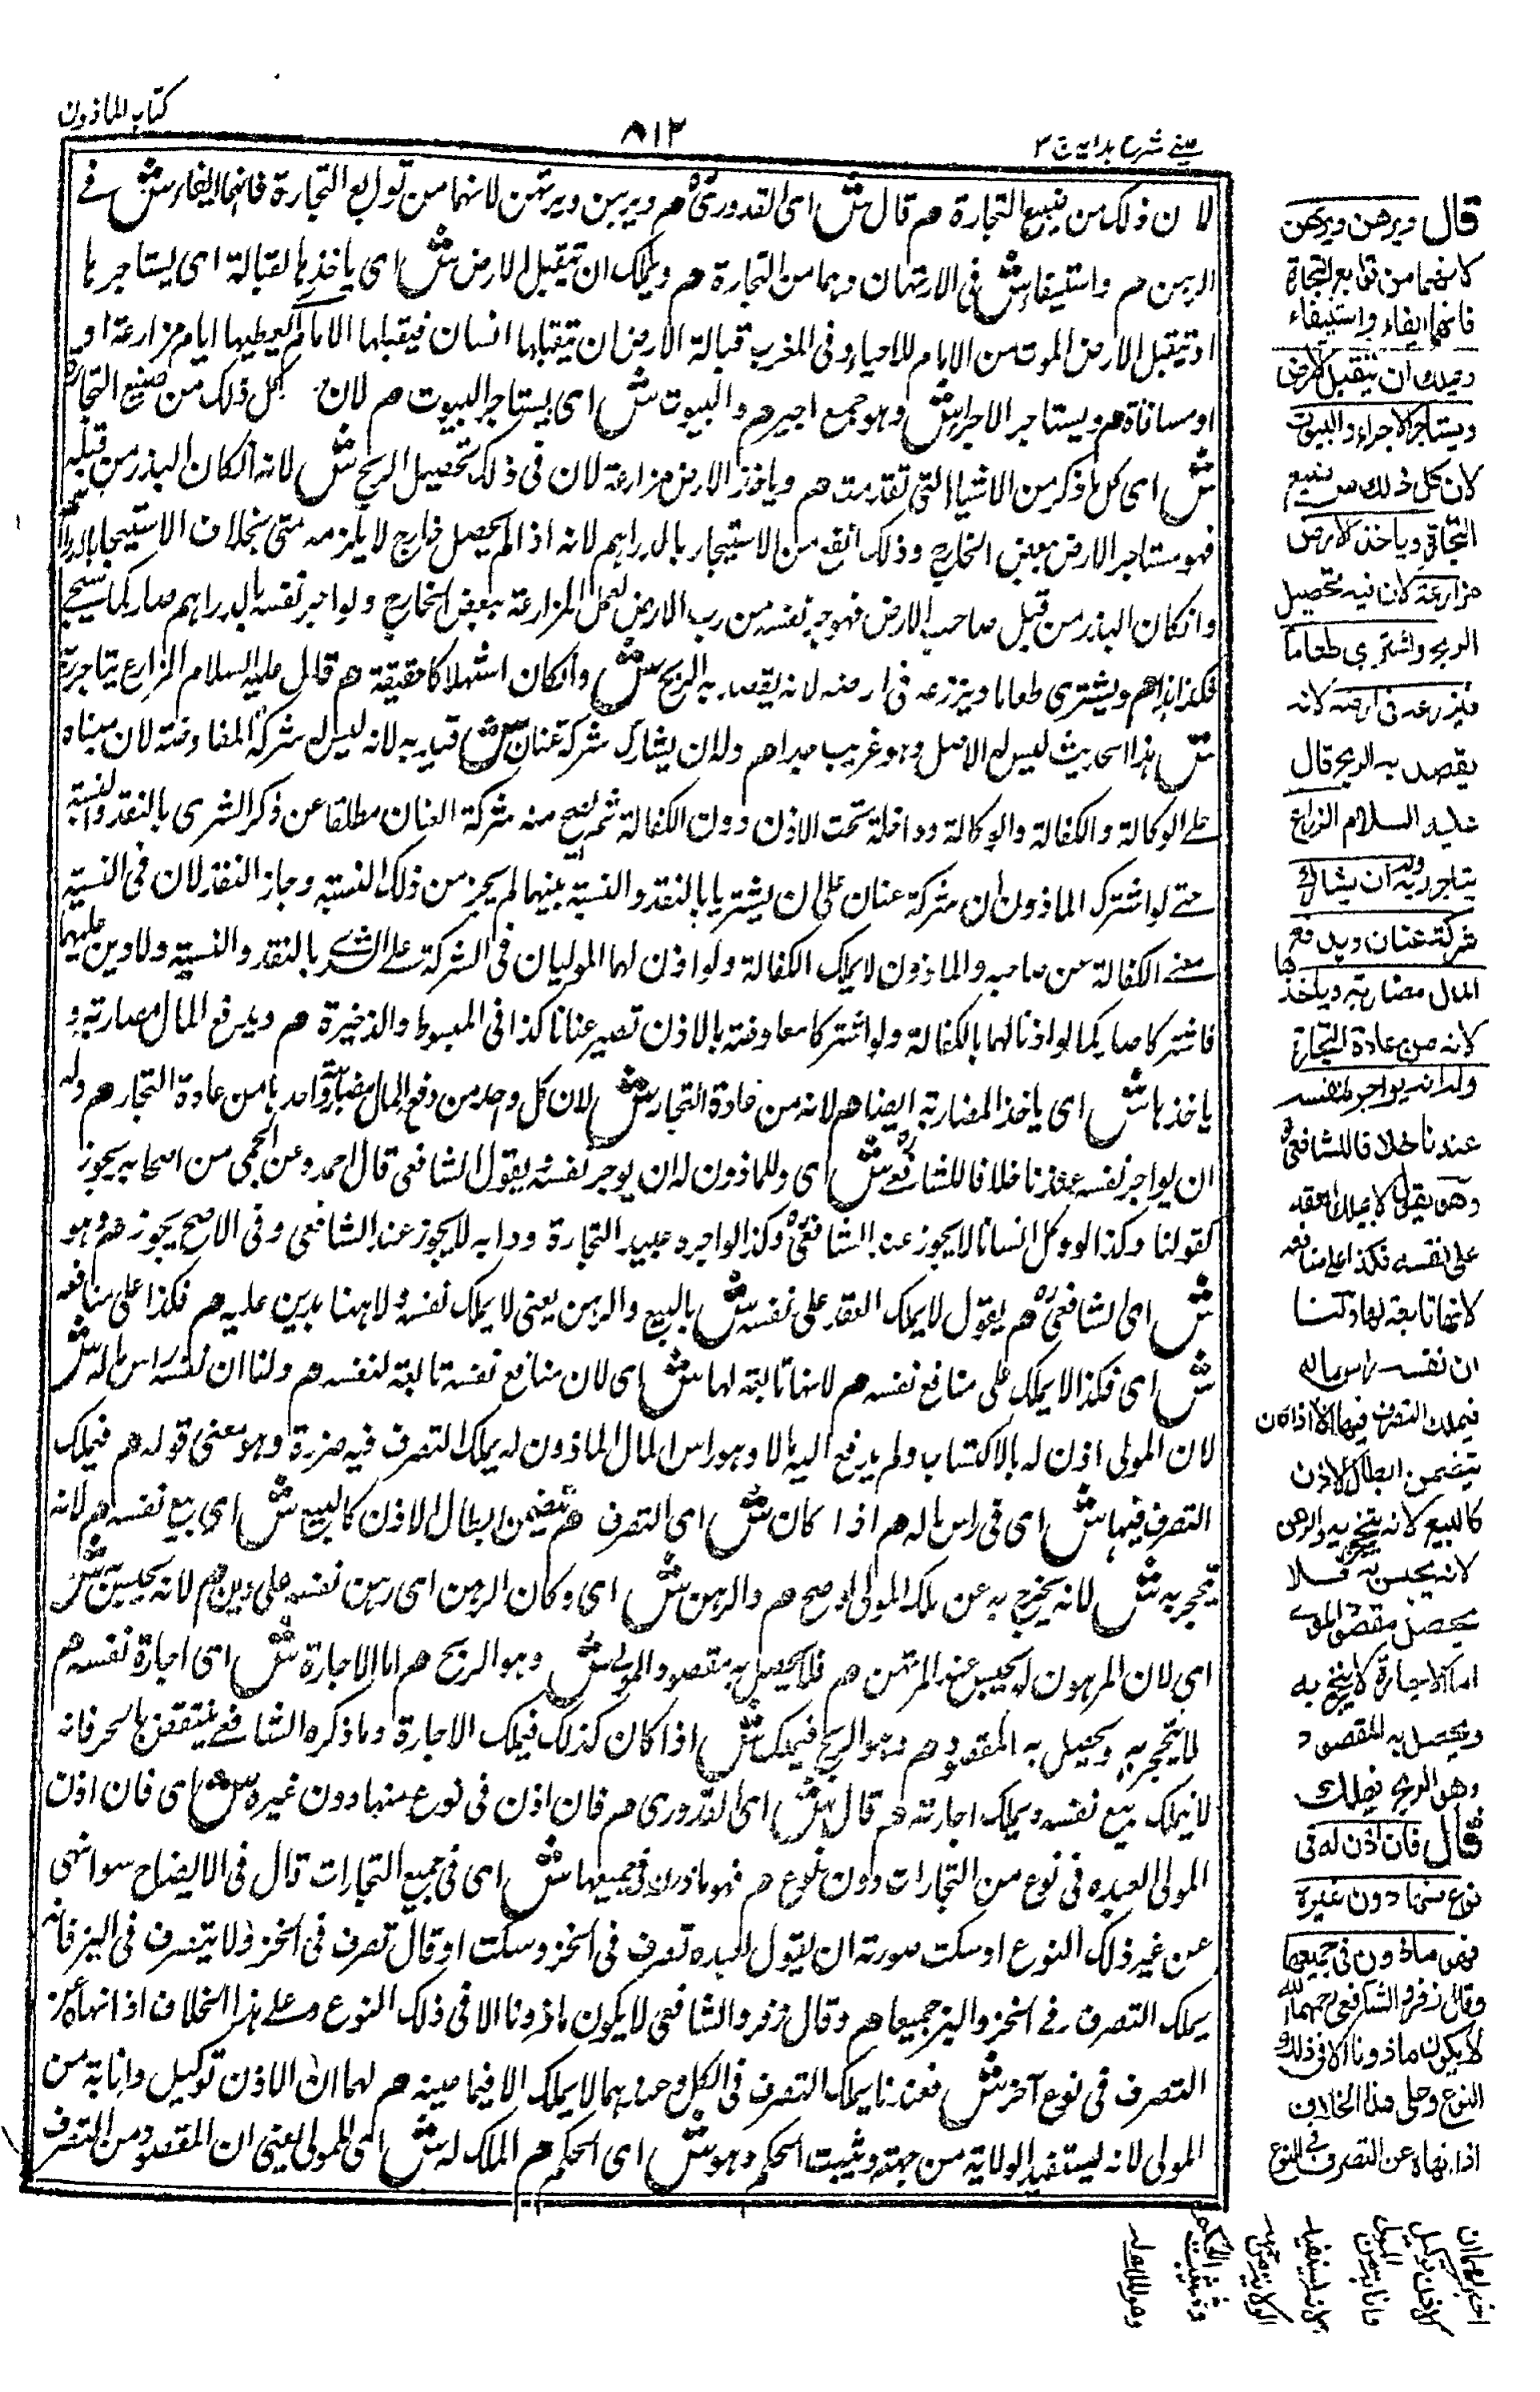 كتاب الماذون
٨١٢
عينے شرح ہدایہ ج ٣
لان ذلك من صنيع التجارة هم قال ش اى القدورى هم ويرہن ويرتہن لانہما من توابع التجارة فانہما ايفاء ش فے
الرہن هم واستيفاء ش فى الارتہان وہما من التجارة هم ويملك ان يتقبل الارض ش اى ياخذہا بقبالة اى يستاجرہا
او يتقبل الارض الموت من الامام للاحياء وفى المغرب قبالة الارض ان يتقبلہا انسان فيقبلہا الامام اى يعطيہا اياہ مزارعة او
او مساقاة هم ويستاجر الاجراء ش وہو جمع اجير هم والبيوت ش اى يستاجر البيوت هم لان كل ذلك من صنيع التجار
ش اى كل ما ذكر من الاشياء التى تقدمت هم وياخذ الارض مزارعة لان فى ذلك تحصيل الربح ش لانہ ان كان البذر من قبلہ
فہو مستاجر الارض ببعض الخارج وذلك انفع من الاستيجار بالدراہم لانہ اذا لم يحصل خارج لا يلزمہ شئ بخلاف الاستيجار بالدراہم
وان كان البذر من قبل صاحب الارض فہو يوجر نفسہ من رب الارض لعمل المزارعة ببعض الخارج ولو اجر نفسہ بالدراہم صار كما سيجئ
فكذا ہذا هم ويشترى طعاما ويزرعہ فى ارضہ لانہ يقصد بہ الربح ش وان كان استہلاكا حقيقة هم قال عليہ السلام الزارع يتاجر ربہ
ش ہذا الحديث ليس لہ الاصل وہو غريب جدا هم ولہ ان يشارك شركة عنان ش قيد بہ لانہ ليس لہ شركة المفاوضة لان مبناہ
على الوكالة والكفالة والوكالة داخلة تحت الاذن دون الكفالة ثم يصح منہ شركة العنان مطلقا عن ذكر الشرى بالنقد والنسية
حتے لو اشترك الماذونان شركة عنان على ان يشتريا بالنقد والنسية بينہما لم يجز من ذلك النسية وجاز النقد لان فى النسية
معنے الكفالة عن صاحبہ والماذون لا يملك الكفالة ولو اذن لہما الموليان فى الشركة على الشرے بالنقد والنسية ولا دين عليہما
فاشتركا صار كما لو اذنا لہما بالكفالة ولو اشتركا مفاوضة بالاذن تصير عنانا كذا فى المبسوط والذخيرة هم ويدفع المال مضاربة و
ياخذہا ش اى ياخذ المضاربة ايضا هم لانہ من عادة التجار ش لان كل واحد من دفع المال مضاربة واخذہا من عادة التجار هم ولہ
ان يواجر نفسہ عندنا خلافا للشافعے ش اى وللماذون لہ ان يوجر نفسہ بقول الشافعى قال احمد وعن الجمى من اصحابہ يجوز
كقولنا وكذا لو وكل انسانا لا يجوز عند الشافعى وكذا لو اجر عبيد التجارة ودابہ لا يجوز عند الشافعى وفى الاصح يجوز هم وہو
ش اى الشافعى هم يقول لا يملك العقد على نفسہ ش بالبيع والرہن يعنى لا يملك نفسہ ولا رہنا بدين عليہ هم فكذا على منافعہ
ش اى فكذا لا يملك على منافع نفسہ هم لانہا تابعة لہا ش اى لان منافع نفسہ تابعة لنفسہ هم ولنا ان نفسہ راس مالہ ش
لان المولى اذن لہ بالاكتساب ولم يدفع اليہ مالا وہو راس المال الماذون لہ يملك التصرف فيہ ضرورة وہو معنى قولہ هم فيملك
التصرف فيہا ش اى فى راس مالہ هم اذا كان ش اى التصرف هم يتضمن ابطال الاذن كالبيع ش اى بيع نفسہ هم لانہ
ينحجر بہ ش لانہ يخرج بہ عن ملك المولى لو صح هم والرہن ش اى وكان الرہن اى رہن نفسہ على دين هم لانہ يحبس بہ ش
اى لان المرہون يحبس عند المرتہن هم فلا يحصل بہ مقصود المولى ش وہو الربح هم اما الاجارة ش اى اجارة نفسہ هم
لا ينحجر بہ ويحصل بہ المقصود هم وہو الربح فيملك ش اذا كان كذلك فيملك الاجارة وما ذكرہ الشافعے ينتقض بالحر فانہ
لا يملك بيع نفسہ ويملك اجارتہ هم قال ش اى القدورى هم فان اذن فى نوع منہا دون غيرہ ش اى فان اذن
المولى لعبدہ فى نوع من التجارات دون نوع هم فہو ماذون فى جميعہا ش اى فى جميع التجارات قال فى الايضاح سوا نہى
عن غير ذلك النوع او سكت صورتہ ان يقول لعبدہ تصرف فى الخز وسكت او قال تصرف فى الخز ولا يتصرف فى البز فانہ
يملك التصرف فے الخز والبز جميعا هم وقال زفر والشافعى لا يكون ماذونا الا فى ذلك النوع وعلے ہذا الخلاف اذا نہاہ عن
التصرف فى نوع آخر ش فعندنا يملك التصرف فى الكل وعندہما لا يملك الا فيما عينہ هم لہما ان الاذن توكيل وانابة من
المولى لانہ يستفيد الولاية من جہتہ ويثبت الحكم وہو ش اى الحكم هم الملك لہ ش اى للمولى يعنى ان المقصود من التصرف
قال ويرهن ويرتهن
لانهما من توابع التجارة
فانهما ايفاء واستيفاء
ويملك ان يتقبل الارض
ويستاجر الاجراء والبيوت
لان كل ذلك من صنيع
التجار وياخذ الارض
مزارعة لان فيه تحصيل
الربح ويشترى طعاما
فيزرعه فى ارضه لانه
يقصد به الربح قال
عليه السلام الزارع
يتاجر ربه وله ان يشارك
شركة عنان ويدفع
المال مضاربة وياخذها
لانه من عادة التجار
وله ان يواجر نفسه
عندنا خلافا للشافعى
وهو يقول لا يملك العقد
على نفسه فكذا على منافعه
لانها تابعة لها ولنا
ان نفسه راس ماله
فيملك التصرف فيها الا اذا كان
يتضمن ابطال الاذن
كالبيع لانه ينحجر به والرهن
لانه يحبس به فلا
يحصل مقصود المولے
اما الاجارة لا ينحجر به
ويحصل به المقصود
وهو الربح فيملك
قال فان اذن له فى
نوع منها دون غيره
فهو ماذون فى جميعها
وقال زفر والشافعى رحمهما الله
لا يكون ماذونا الا فى ذلك
النوع وعلى هذا الخلاف
اذا نهاه عن التصرف فى نوع
اخر لهما ان
الاذن توكيل
وانابة من
المولى
لانه يستفيد
الولاية من جهته
ويثبت الحكم
وهو الملك له